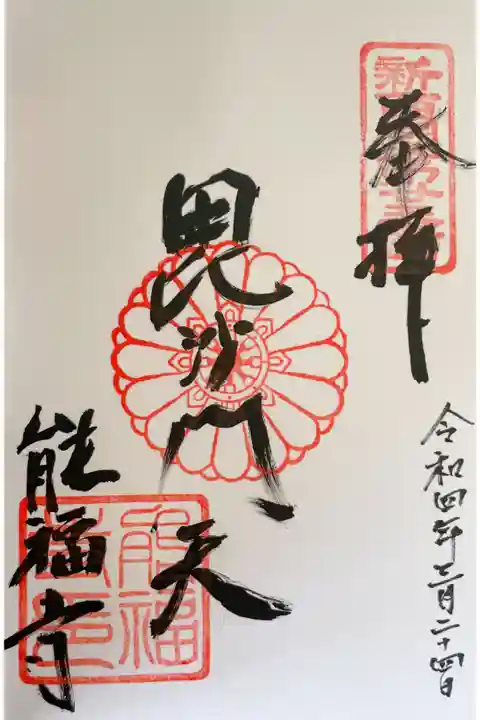 奉拝
新西国霊場
令和四年三月二十四日
毘沙門天
能福寺
能福寺印